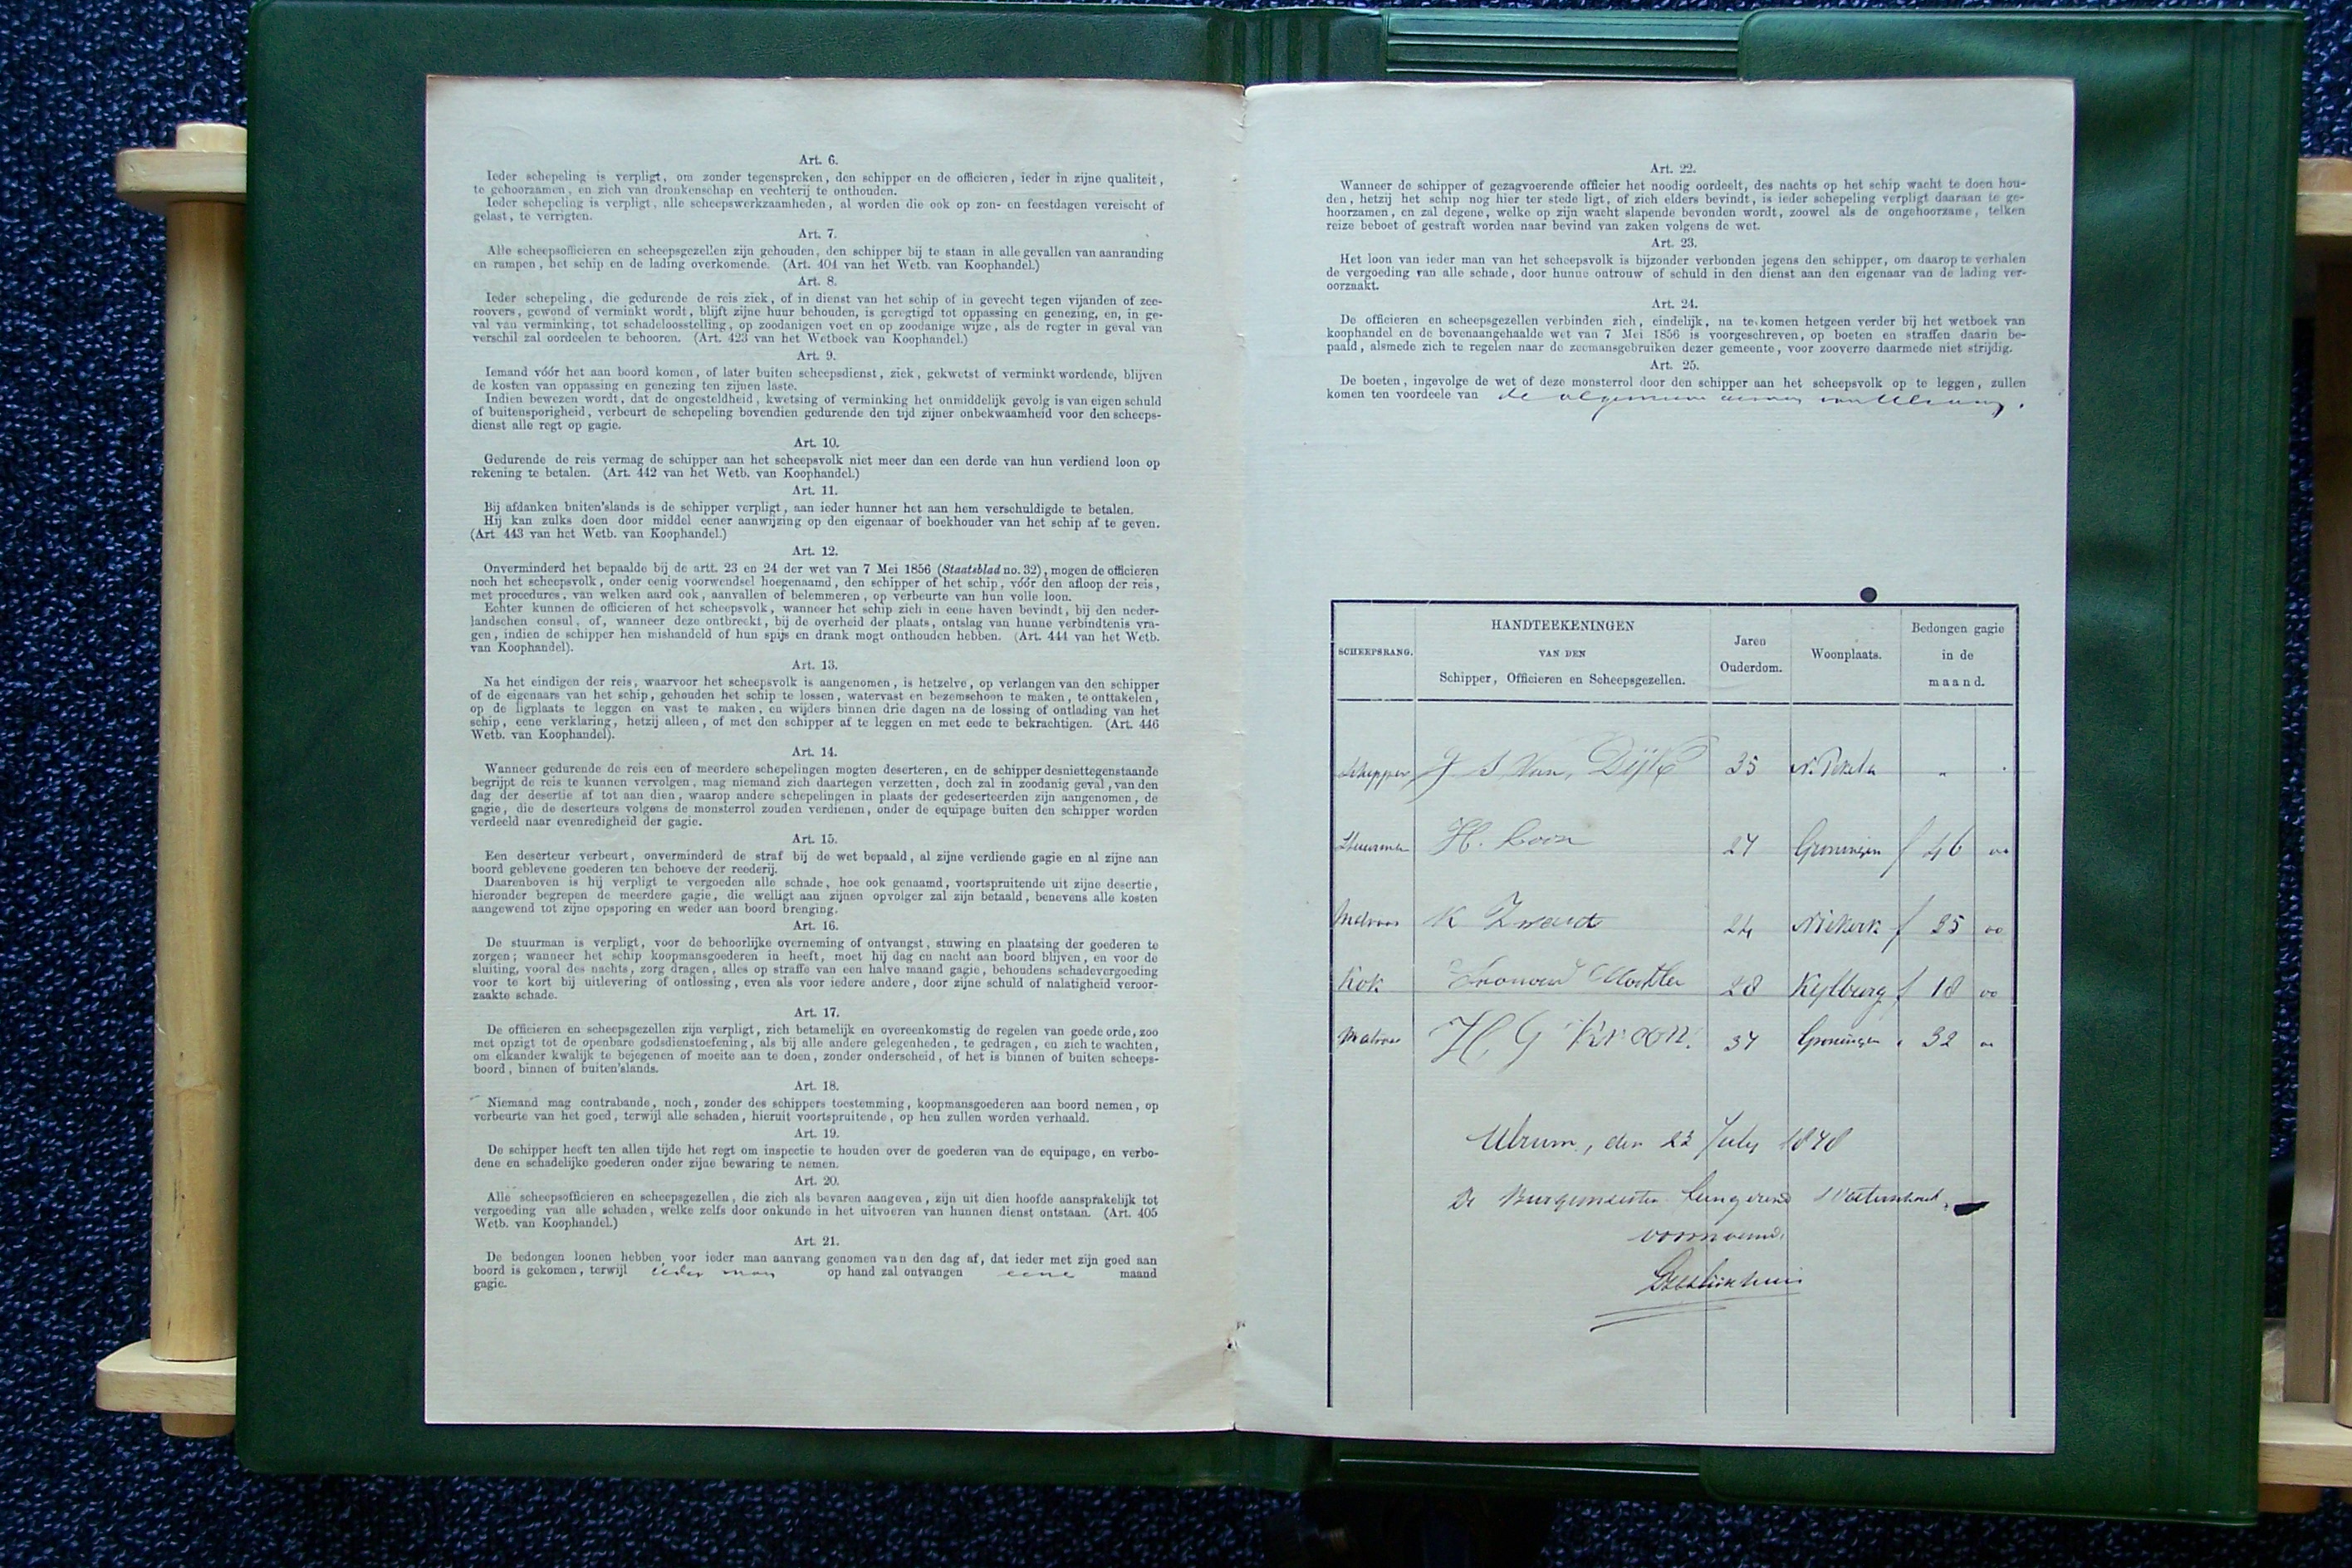 Art. 6.
Ieder schepeling is verpligt, om zonder tegenspreken, den schipper en de officieren, ieder in zijne qualiteit,
te gehoorzamen, en zich van dronkenschap en vechterij te onthouden.
Ieder schepeling is verpligt, alle scheepswerkzaamheden, al worden die ook op zon- en feestdagen vereischt of
gelast, te verrigten.
Art. 7.
Alle scheepsofficieren en scheepsgezellen zijn gehouden, den schipper bij te staan in alle gevallen van aanranding
en rampen, het schip en de lading overkomende. (Art. 404 van het Wetb. van Koophandel.)
Art. 8.
Ieder schepeling, die gedurende de reis ziek, of in dienst van het schip of in gevecht tegen vijanden of zee-
roovers, gewond of verminkt wordt, blijft zijne huur behouden, is geregtigd tot oppassing en genezing, en, in ge-
val van verminking, tot schadeloosstelling, op zoodanigen voet en op zoodanige wijze, als de regter in geval van
verschil zal oordeelen te behooren. (Art. 423 van het Wetboek van Koophandel.)
Art. 9.
Iemand vóór het aan boord komen, of later buiten scheepsdienst, ziek, gekwetst of verminkt wordende, blijven
de kosten van oppassing en genezing ten zijnen laste.
Indien bewezen wordt, dat de ongesteldheid, kwetsing of verminking het onmiddelijk gevolg is van eigen schuld
of buitensporigheid, verbeurt de schepeling bovendien gedurende den tijd zijner onbekwaamheid voor den scheeps-
dienst alle regt op gagie.
Art. 10.
Gedurende de reis vermag de schipper aan het scheepsvolk niet meer dan een derde van hun verdiend loon op
rekening te betalen. (Art. 442 van het Wetb. van Koophandel.)
Art. 11.
Bij afdanken buiten'slands is de schipper verpligt, aan ieder hunner het aan hem verschuldigde te betalen.
Hij kan zulks doen door middel eener aanwijzing op den eigenaar of boekhouder van het schip af te geven.
(Art 443 van het Wetb. van Koophandel.)
Art. 12.
Onverminderd het bepaalde bij de artt. 23 en 24 der wet van 7 Mei 1856 (Staatsblad no. 32), mogen de officieren
noch het scheepsvolk, onder eenig voorwendsel hoegenaamd, den schipper of het schip, vóór den afloop der reis,
met procedures, van welken aard ook, aanvallen of belemmeren, op verbeurte van hun volle loon.
Echter kunnen de officieren of het scheepsvolk, wanneer het schip zich in eene haven bevindt, bij den neder-
landschen consul, of, wanneer deze ontbreekt, bij de overheid der plaats, ontslag van hunne verbindtenis vra-
gen, indien de schipper hen mishandeld of hun spijs en drank mogt onthouden hebben. (Art. 444 van het Wetb.
van Koophandel).
Art. 13.
Na het eindigen der reis, waarvoor het scheepsvolk is aangenomen, is hetzelve, op verlangen van den schipper
of de eigenaars van het schip, gehouden het schip te lossen, watervast en bezemschoon te maken, te onttakelen,
op de ligplaats te leggen en vast te maken, en wijders binnen drie dagen na de lossing of ontlading van het
schip, eene verklaring, hetzij alleen, of met den schipper af te leggen en met eede te bekrachtigen. (Art. 446
Wetb. van Koophandel).
Art. 14.
Wanneer gedurende de reis een of meerdere schepelingen mogten deserteren, en de schipper desniettegenstaande
begrijpt de reis te kunnen vervolgen, mag niemand zich daartegen verzetten, doch zal in zoodanig geval, van den
dag der desertie af tot aan dien, waarop andere schepelingen in plaats der gedeserteerden zijn aangenomen, de
gagie, die de deserteurs volgens de monsterrol zouden verdienen, onder de equipage buiten den schipper worden
verdeeld naar evenredigheid der gagie.
Art. 15.
Een deserteur verbeurt, onverminderd de straf bij de wet bepaald, al zijne verdiende gagie en al zijne aan
boord geblevene goederen ten behoeve der reederij.
Daarenboven is hij verpligt te vergoeden alle schade, hoe ook genaamd, voortspruitende uit zijne desertie,
hieronder begrepen de meerdere gagie, die welligt aan zijnen opvolger zal zijn betaald, benevens alle kosten
aangewend tot zijne opsporing en weder aan boord brenging.
Art. 16.
De stuurman is verpligt, voor de behoorlijke overneming of ontvangst, stuwing en plaatsing der goederen te
zorgen; wanneer het schip koopmansgoederen in heeft, moet hij dag en nacht aan boord blijven, en voor de
sluiting, vooral des nachts, zorg dragen, alles op straffe van een halve maand gagie, behoudens schadevergoeding
voor te kort bij uitlevering of ontlossing, even als voor iedere andere, door zijne schuld of nalatigheid veroor-
zaakte schade.
Art. 17.
De officieren en scheepsgezellen zijn verpligt, zich betamelijk en overeenkomstig de regelen van goede orde, zoo
met opzigt tot de openbare godsdienstoefening, als bij alle andere gelegenheden, te gedragen, en zich te wachten,
om elkander kwalijk te bejegenen of moeite aan te doen, zonder onderscheid, of het is binnen of buiten scheeps-
boord, binnen of buiten'slands.
Art. 18.
Niemand mag contrabande, noch, zonder des schippers toestemming, koopmansgoederen aan boord nemen, op
verbeurte van het goed, terwijl alle schaden, hieruit voortspruitende, op hen zullen worden verhaald.
Art. 19.
De schipper heeft ten allen tijde het regt om inspectie te houden over de goederen van de equipage, en verbo-
dene en schadelijke goederen onder zijne bewaring te nemen.
Art. 20.
Alle scheepsofficieren en scheepsgezellen, die zich als bevaren aangeven, zijn uit dien hoofde aansprakelijk tot
vergoeding van alle schaden, welke zelfs door onkunde in het uitvoeren van hunnen dienst ontstaan. (Art. 405
Wetb. van Koophandel.)
Art. 21.
De bedongen loonen hebben voor ieder man aanvang genomen van den dag af, dat ieder met zijn goed aan
boord is gekomen, terwijl ieder man op hand zal ontvangen eene maand
gagie.
Art. 22.
Wanneer de schipper of gezagvoerende officier het noodig oordeelt, des nachts op het schip wacht te doen hou-
den, hetzij het schip nog hier ter stede ligt, of zich elders bevindt, is ieder schepeling verpligt daaraan te ge-
hoorzamen, en zal degene, welke op zijn wacht slapende bevonden wordt, zoowel als de ongehoorzame, telken
reize beboet of gestraft worden naar bevind van zaken volgens de wet.
Art. 23.
Het loon van ieder man van het scheepsvolk is bijzonder verbonden jegens den schipper, om daarop te verhalen
de vergoeding van alle schade, door hunne ontrouw of schuld in den dienst aan den eigenaar van de lading ver-
oorzaakt.
Art. 24.
De officieren en scheepsgezellen verbinden zich, eindelijk, na te komen hetgeen verder bij het wetboek van
koophandel en de bovenaangehaalde wet van 7 Mei 1856 is voorgeschreven, op boeten en straffen daarin be-
paald, alsmede zich te regelen naar de zeemansgebruiken dezer gemeente, voor zooverre daarmede niet strijdig.
Art. 25.
De boeten, ingevolge de wet of deze monsterrol door den schipper aan het scheepsvolk op te leggen, zullen
komen ten voordeele van de algemeene armen van Ulrum.
SCHEEPSRANG. HANDTEEKENINGEN VAN DEN Schipper, Officieren en Scheepsgezellen. Jaren Ouderdom. Woonplaats. Bedongen gagie in de maand.
Schipper J S Van Dijk 35 N. Pekela " "
Stuurman H. 27 Groningen f 46 00
Matroos K Zwart 24 Niekerk f 25 00
Kok 28 Kylburg f 18 00
Matroos H. G Kroon. 37 Groningen " 32 00
Ulrum, den 23 July 1878
De Burgemeester
voornoemd.